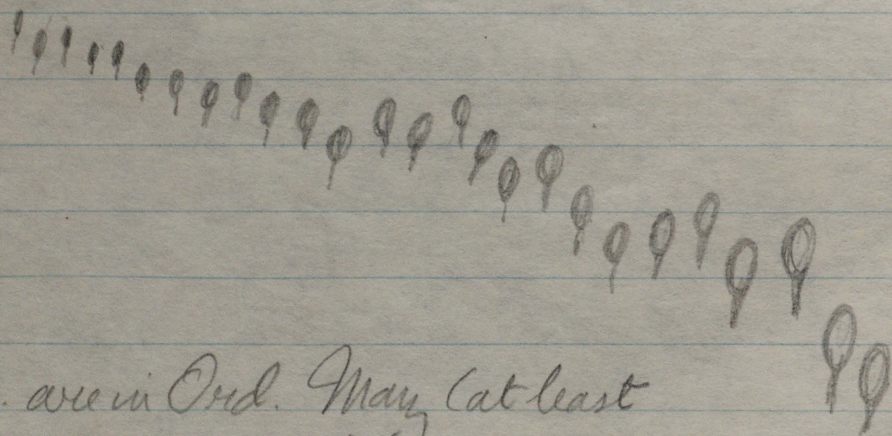 . are in Ord. Many (at least